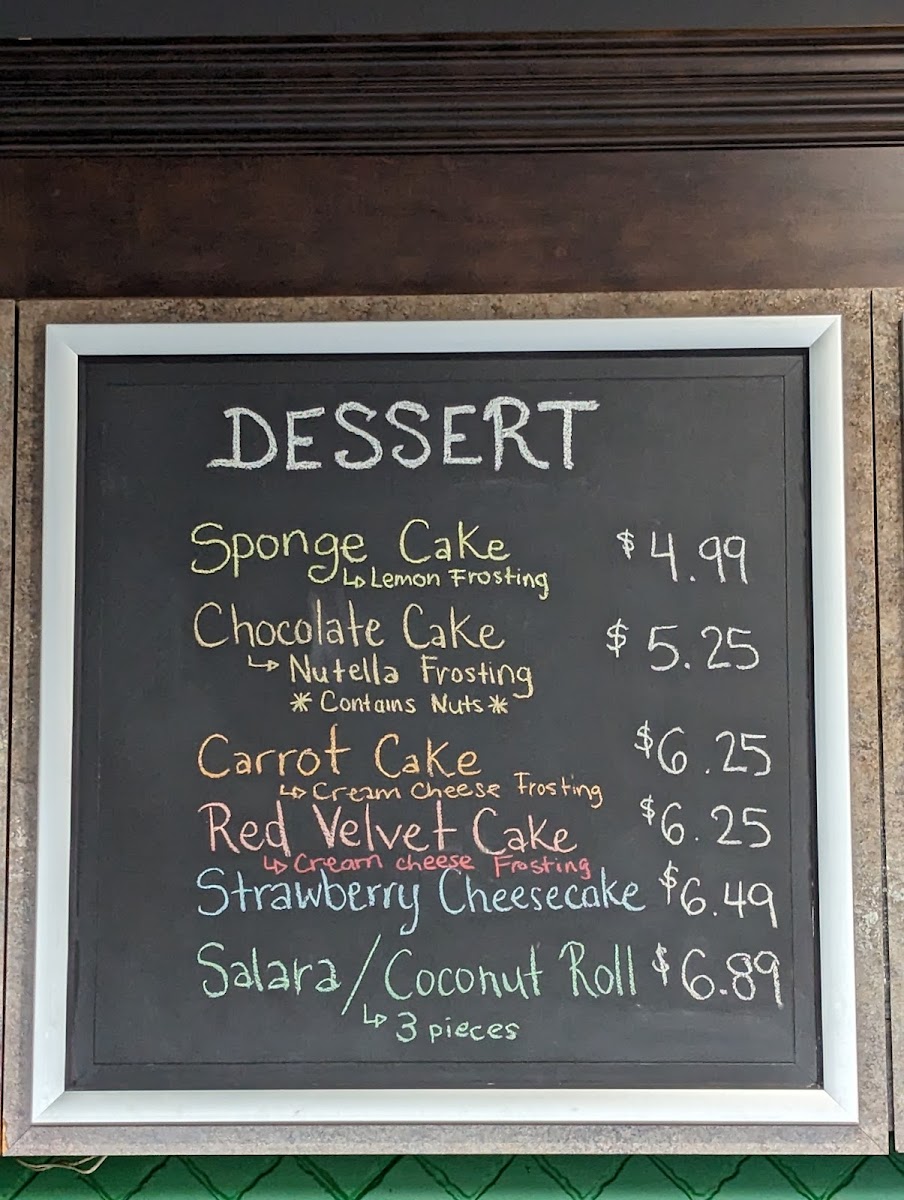 DESSERT
Sponge Cake $4.99
↳ Lemon Frosting
Chocolate Cake $5.25
↳ Nutella Frosting
* Contains Nuts *
Carrot Cake $6.25
↳ Cream Cheese Frosting
Red Velvet Cake $6.25
↳ Cream cheese Frosting
Strawberry Cheesecake $6.49
Salara/Coconut Roll $6.89
↳ 3 pieces